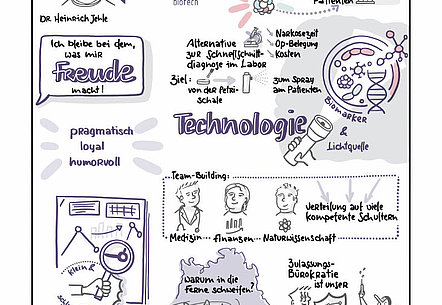 biotech
Patienten
DR. Heinrich Jehle
Ich bleibe bei dem,
was mir
Freude
macht!
pragmatisch
loyal
humorvoll
Alternative
zur Schnellschnitt-
diagnose im Labor
Narkosezeit
OP-Belegung
Kosten
Ziel:
von der Petri-
schale
zum Spray
am Patienten
Biomarker
&
Lichtquelle
Technologie
Team-Building:
Medizin
Finanzen
Naturwissenschaft
Verteilung auf viele
kompetente Schultern
klein &
Warum in die
Ferne schweifen?
Zulassungs-
Bürokratie
ist unser